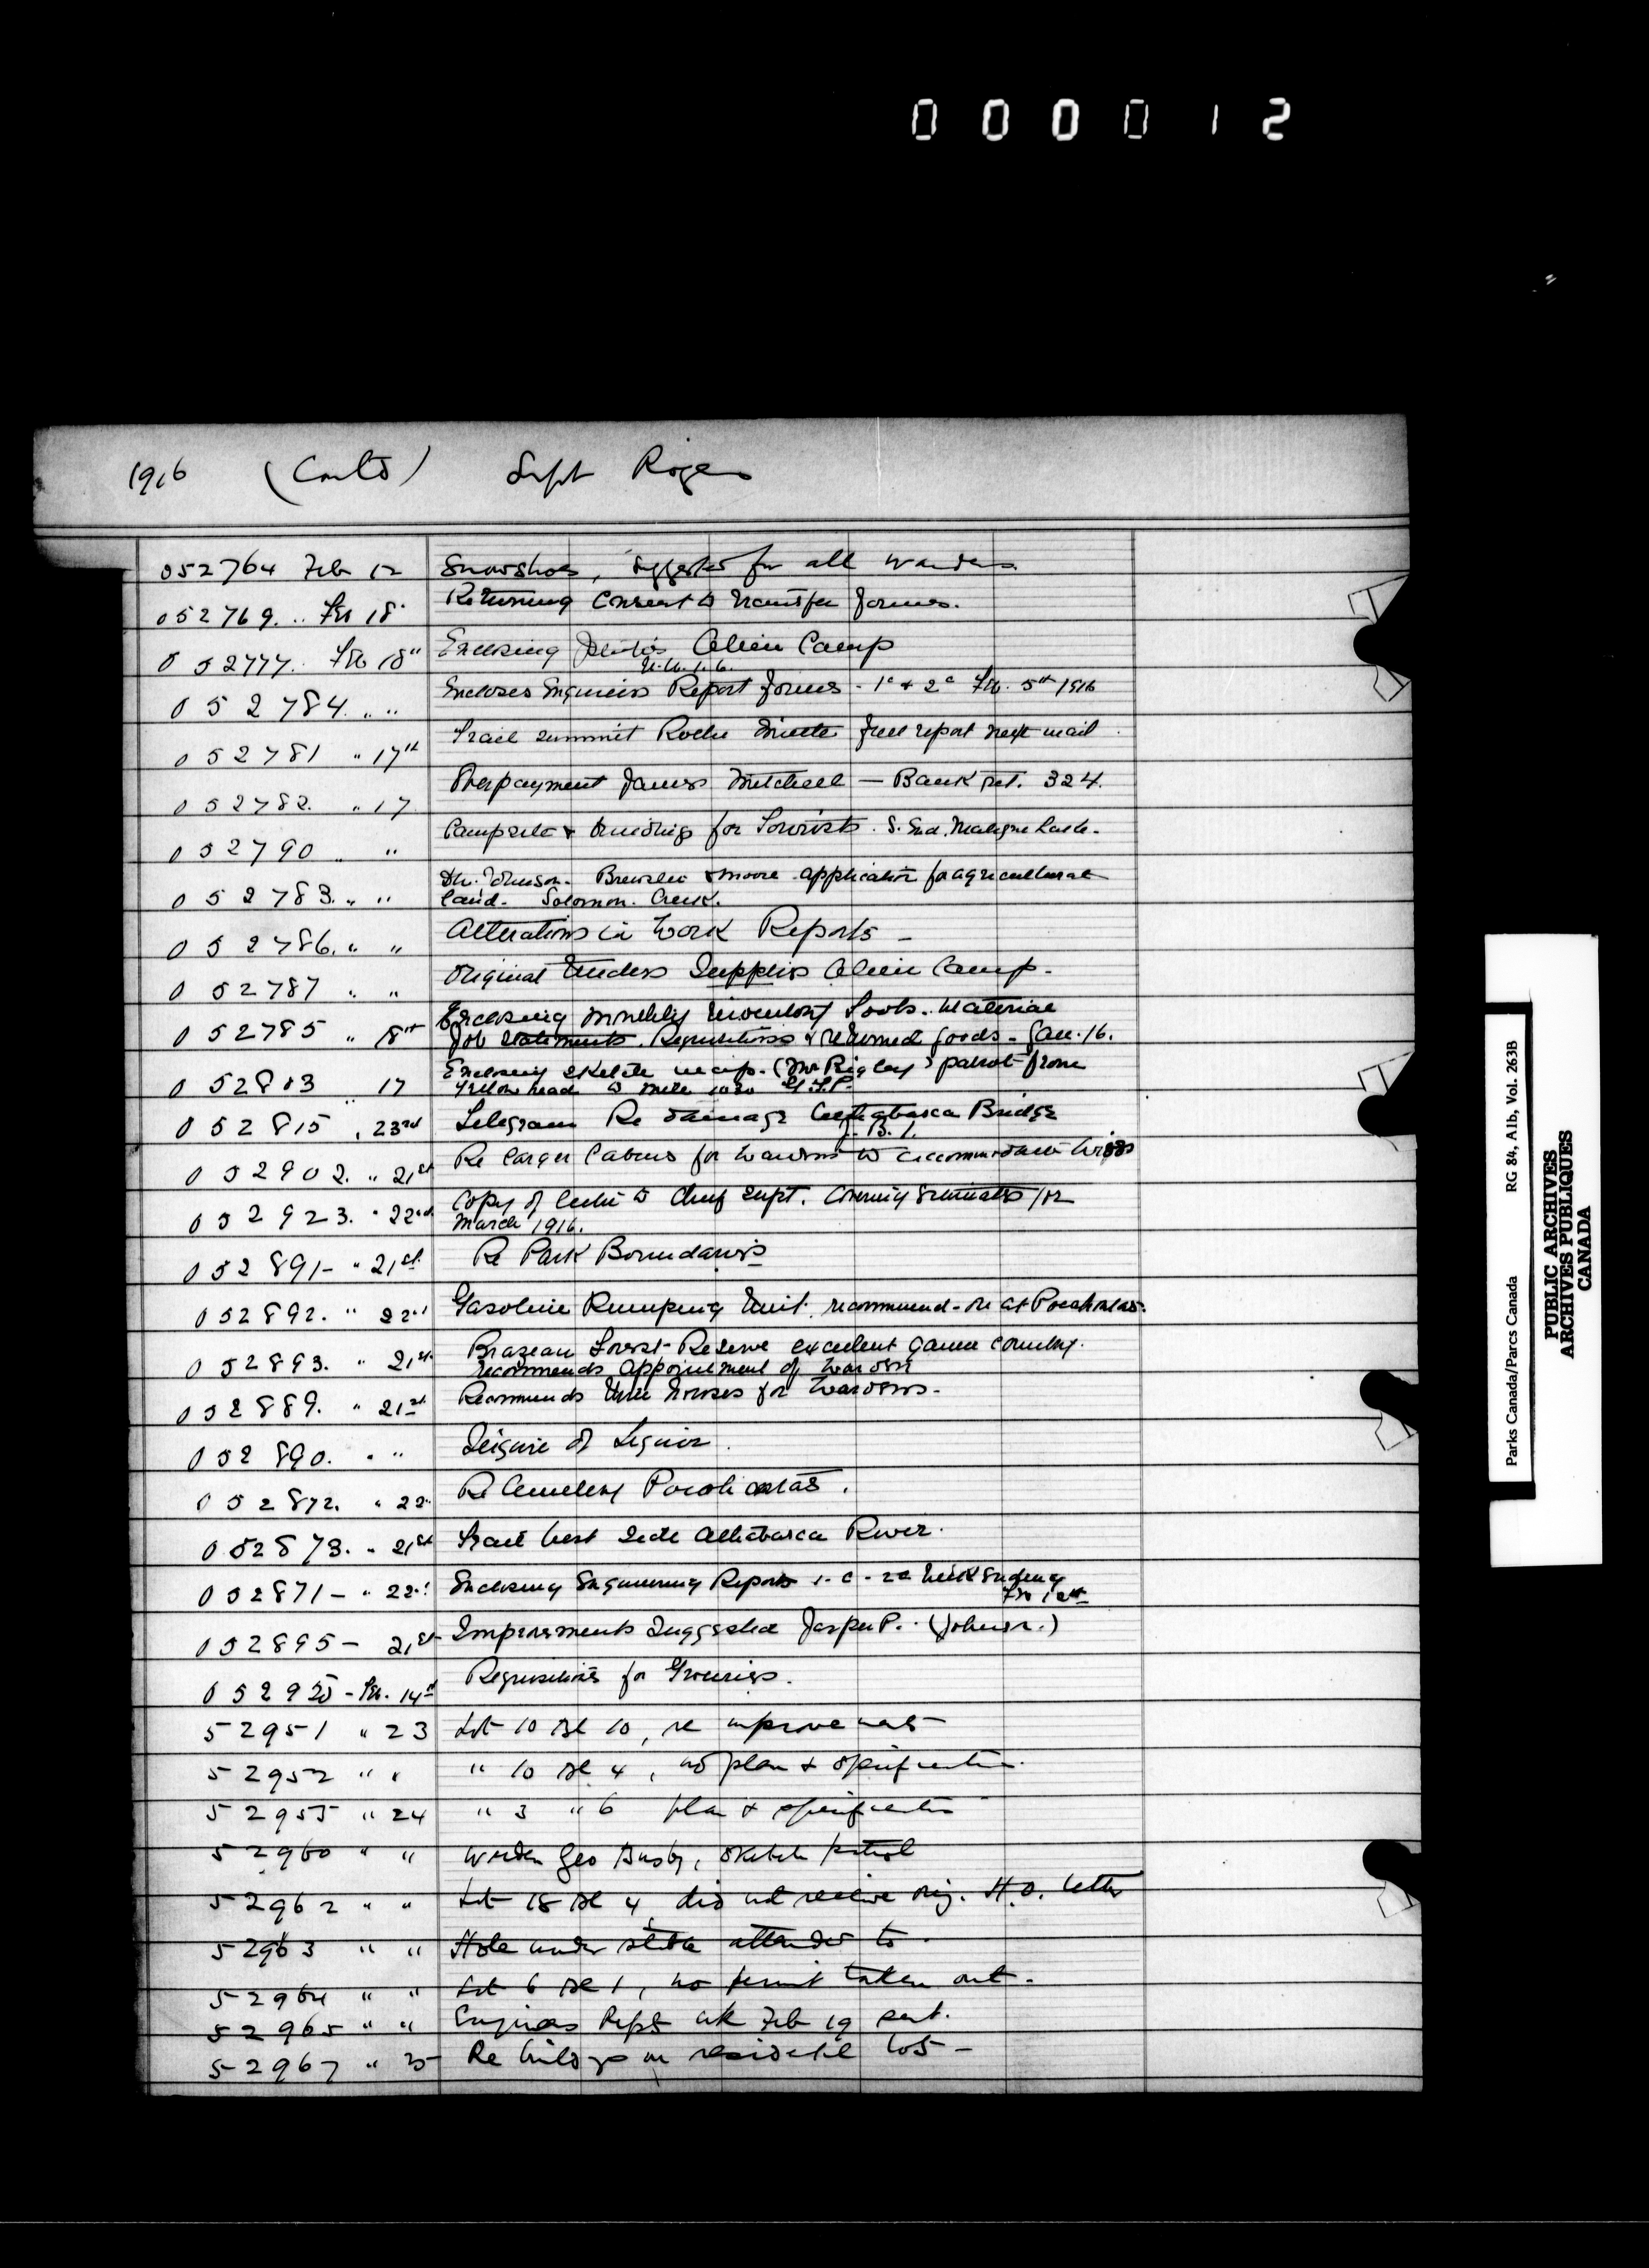 000012
1916 (Contd) Supt Rogers
052764 Feb 12 Snowshoes, suggested for all wardens
052769 .. Feb 18 Returning Consent to transfer forms.
052777. Feb 18" Enclosing Alien Camp
052784. " " Encloses Engineers Report forms - 1c + 2c Feb. 5th 1916
052781 " 17th Trail summit Roche Miette full report next mail
052782. " 17 Overpayment James Mitchell — Bank ret. 324.
052790 " " Campsite & buildings for Tourists. S. End. Maligne Lake.
052783. " " Johnson. Brewster & Moore application for agricultural
land. Solomon. Creek.
052786. " " Alterations in Work Reports -
052787 " " Original Tenders Supplies Alien Camp.
052785 " 18th Enclosing monthly Inventory Tools. Material
Job Statements. Requisitions & returned goods - Jan. 16.
052803 " 17 Enclosing sketch map. (Mr Rigby) patrol from
Yellowhead to mile 1030 G.T.P.
052815 " 23rd Telegram Re damage Athabasca Bridge
J. B. 1.
052902. " 21st Re larger Cabins for wardens to accommodate wives
052923. " 22nd Copy of letter to Chief Supt. Covering Estimates for
March 1916.
052891- " 21st Re Park Boundaries
052892. " 22nd Gasoline Pumping Unit. recommend-on at Pocahontas.
052893. " 21st Brazeau Forest Reserve excellent game country.
recommends appointment of warden
052889. " 21st Recommends three horses for wardens.
052890. " " Seizure of Liquor.
052872. " 22 Re Cemetery Pocahontas.
052873. " 21st Trail West Side Athabasca River.
052871- " 22nd Enclosing Engineering Reports 1-c - 2c Week Ending
Feb 12th
052895- 21st Improvements Suggested Jasper P. (Johnson.)
052925 - Feb. 14th Requisitions for Groceries.
52951 " 23 Lot 10 Bl 10, re improvements
52952 " " " 10 Bl 4, no plan & specification.
52955 " 24 " 3 " 6 plan & specification
52960 " " Warden Geo Busby, sketch patrol
52962 " " Lot 18 Bl 4, did not receive orig. H.O. letter
52963 " " Hole under attended to.
52964 " " Lot 6 Bl 1, no permit taken out.
52965 " " Engineers Repts wk Feb 19 sent.
52967 " 25 Re buildings on residential lots -
Parks Canada/Parcs Canada RG 84, Alb, Vol. 263B
PUBLIC ARCHIVES
ARCHIVES PUBLIQUES
CANADA